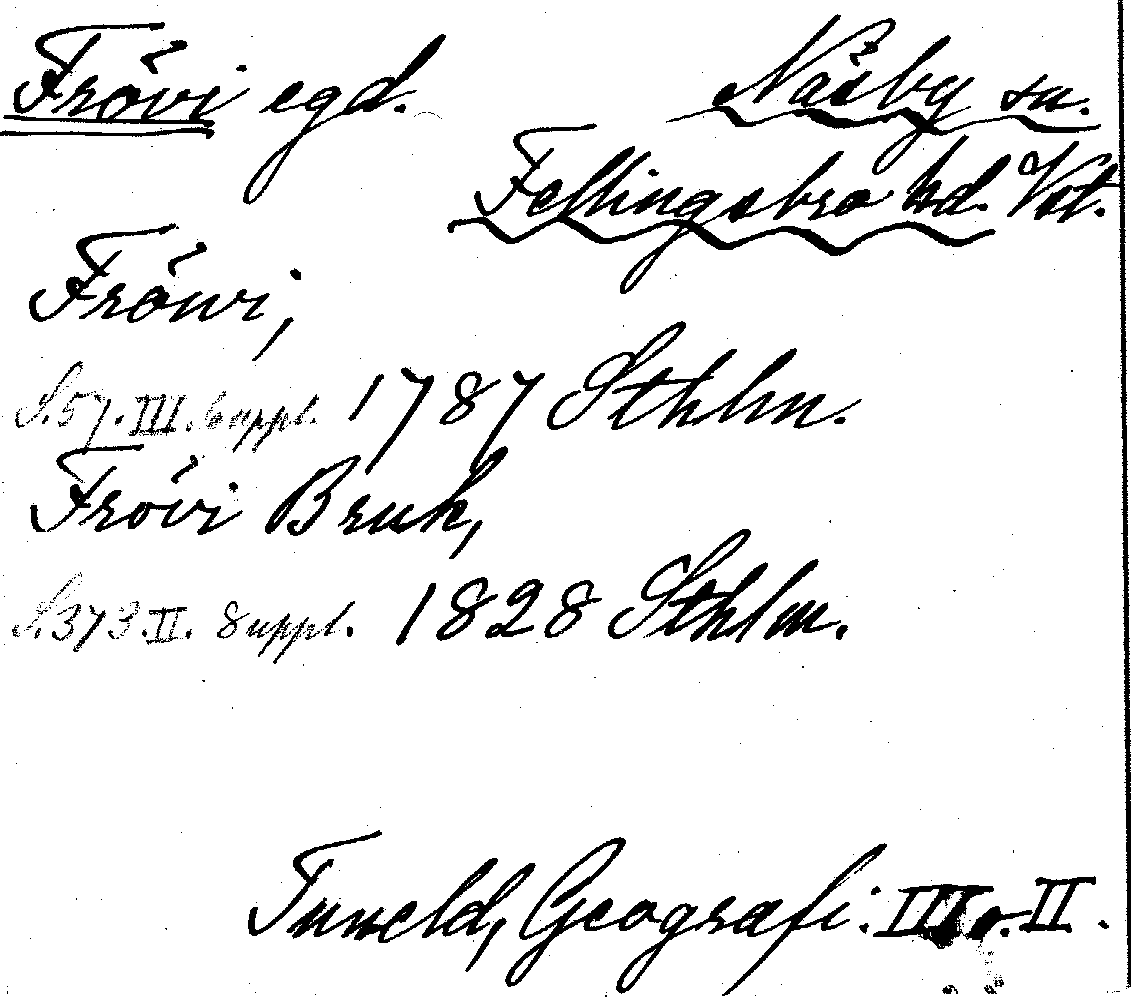 Frövi egd. Näsby sn.
Fellingsbro hd. Vst.
Fröwi,
S. 57. III. Suppl. 1787 Sthlm.
Frövi Bruk,
S. 373. II. Suppl. 1828 Sthlm.
Tuneld, Geografi: III o. II.